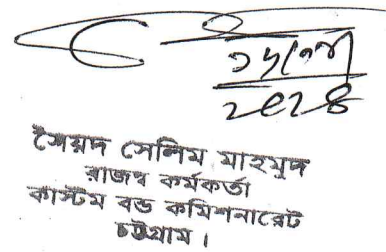 ২০২৪
সৈয়দ সেলিম মাহমুদ
রাজস্ব কর্মকর্তা
কাস্টম বন্ড কমিশনারেট
চট্টগ্রাম।